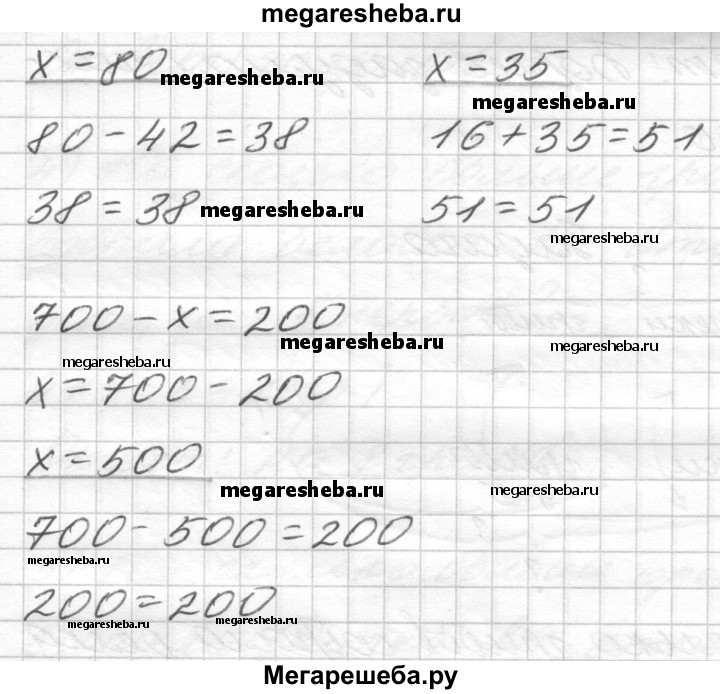 megaresheba.ru
x = 80
megaresheba.ru
80 - 42 = 38
38 = 38
megaresheba.ru
x = 35
megaresheba.ru
16 + 35 = 51
51 = 51
megaresheba.ru
700 - x = 200
megaresheba.ru
megaresheba.ru
megaresheba.ru
x = 700 - 200
x = 500
megaresheba.ru
megaresheba.ru
700 - 500 = 200
megaresheba.ru
200 = 200
megaresheba.ru
megaresheba.ru
Мегарешеба.ру